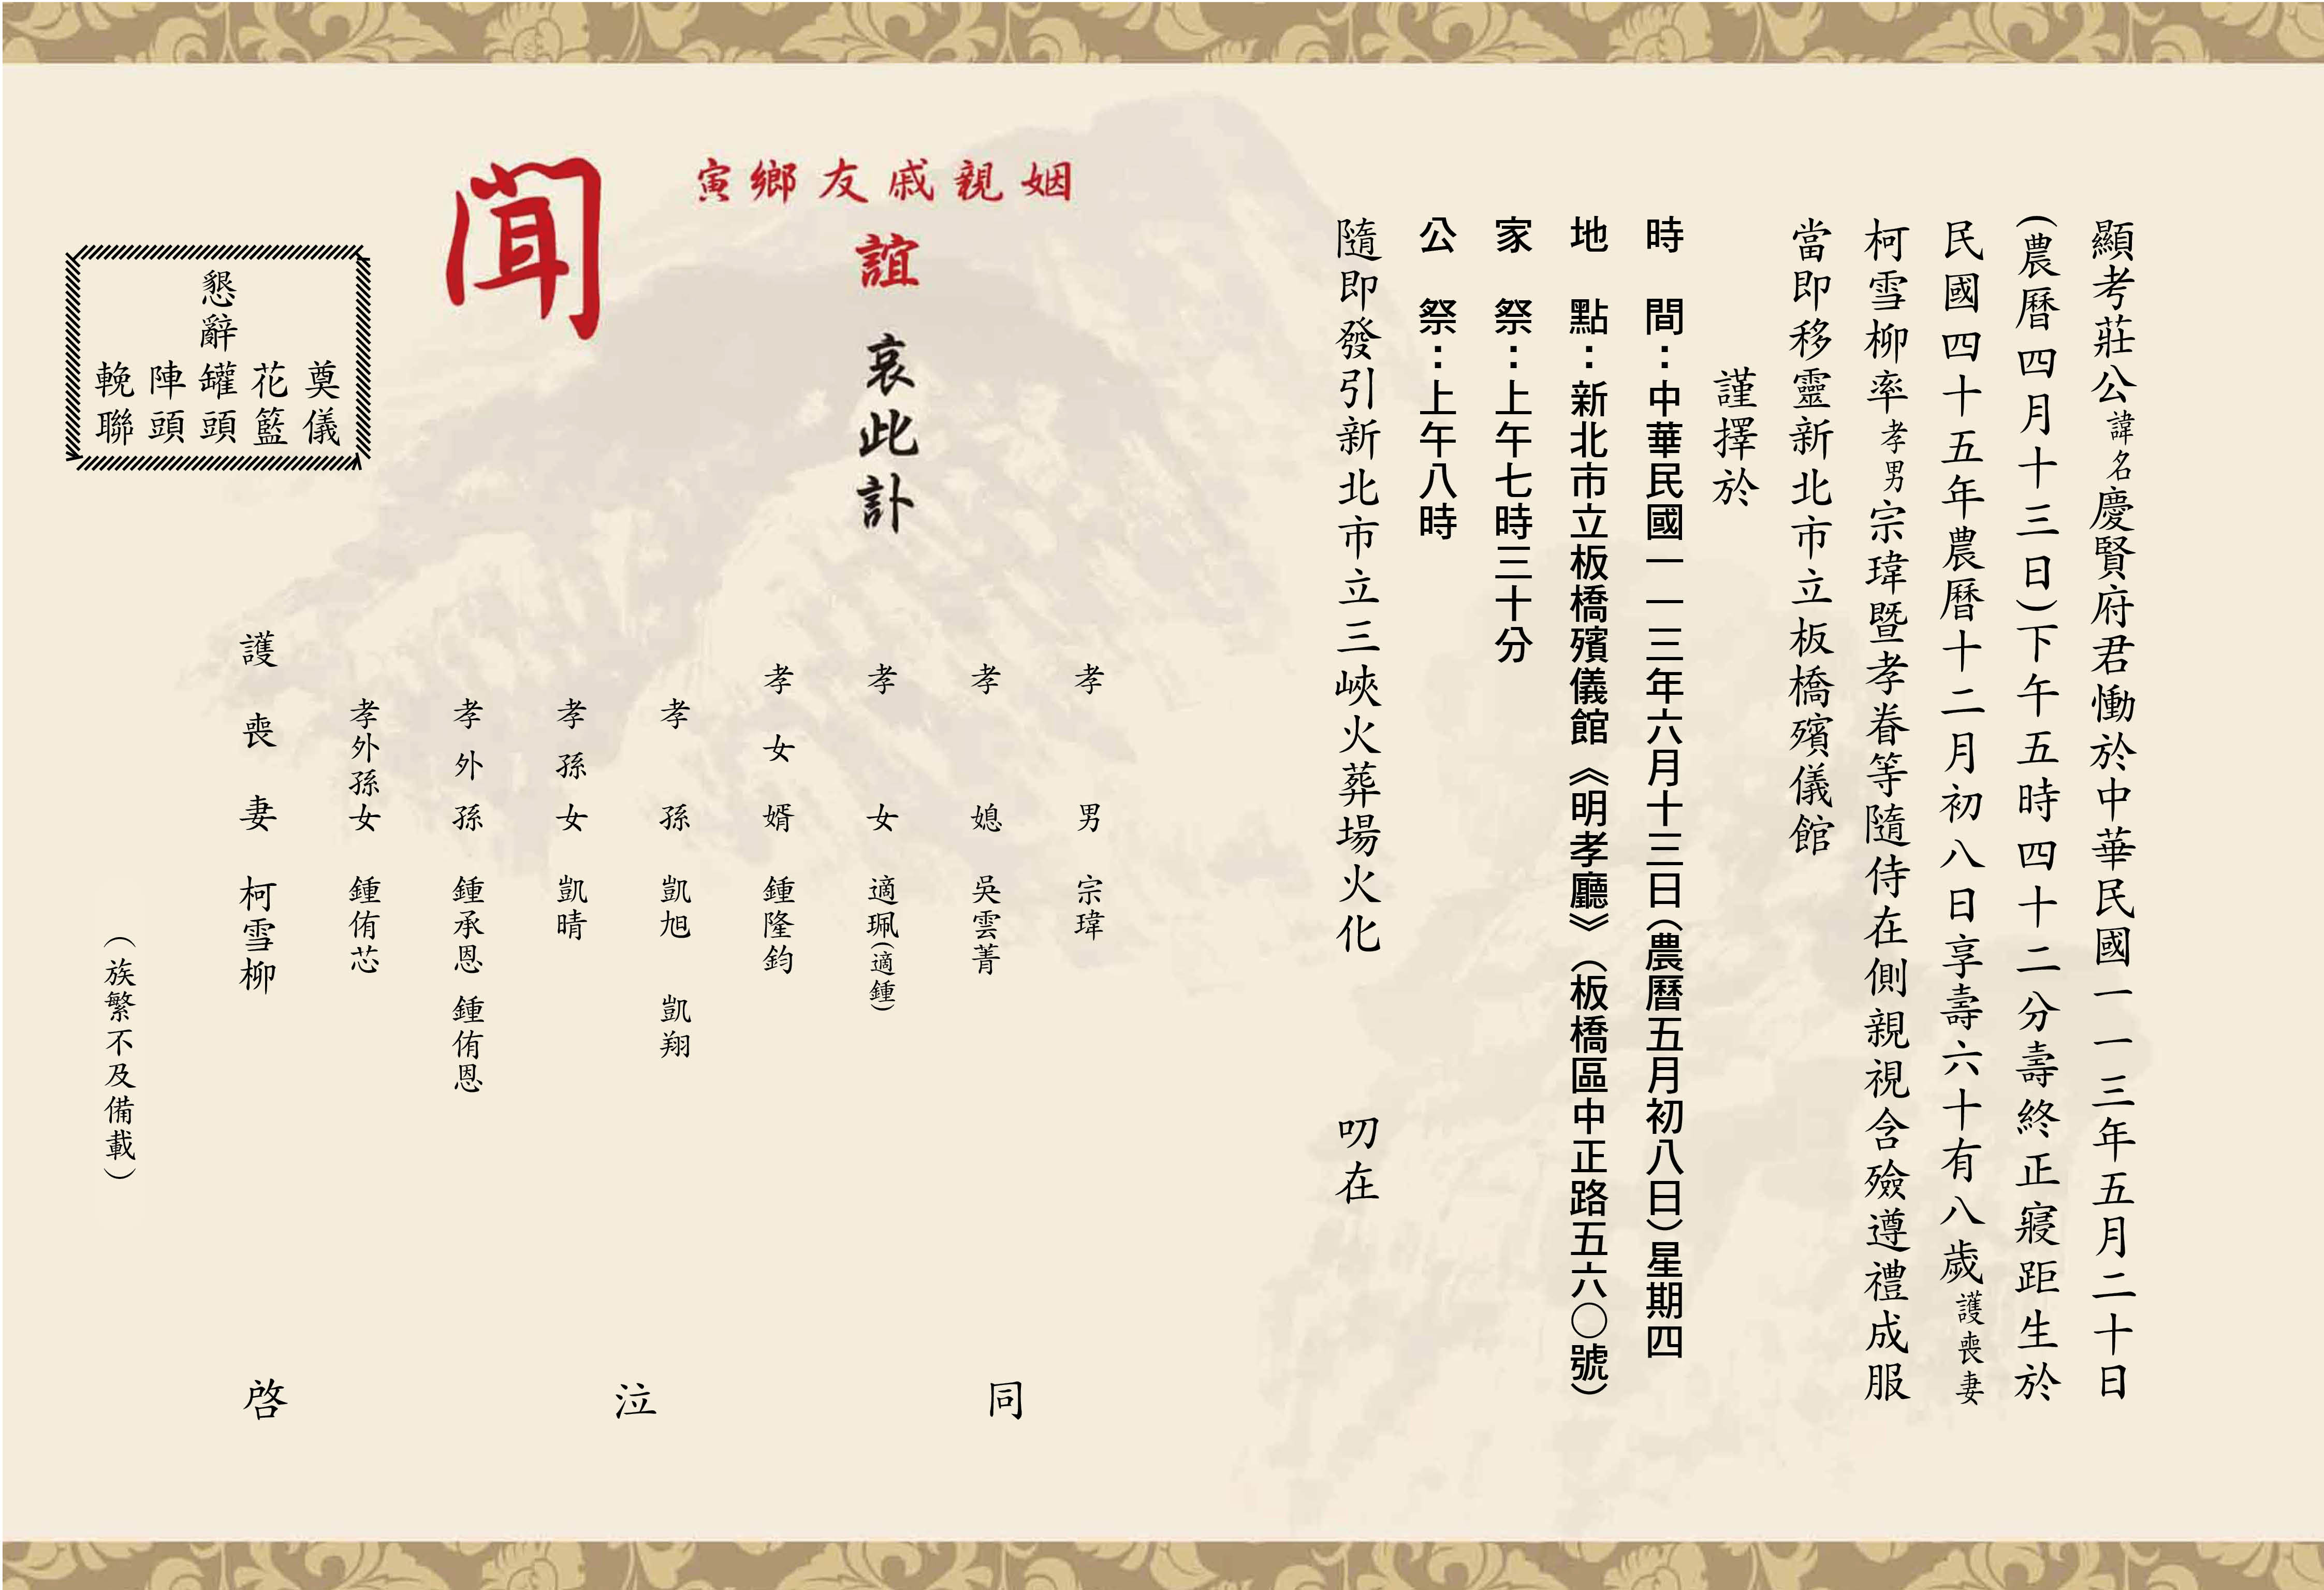 顯考莊公諱名慶賢府君慟於中華民國一一三年五月二十日
(農曆四月十三日)下午五時四十二分壽終正寢距生於
民國四十五年農曆十二月初八日享壽六十有八歲護喪妻
柯雪柳率孝男宗瑋暨孝眷等隨侍在側親視含殮遵禮成服
當即移靈新北市立板橋殯儀館
謹擇於
時間：中華民國一一三年六月十三日(農曆五月初八日)星期四
地點：新北市立板橋殯儀館《明孝廳》(板橋區中正路五六○號)
家祭：上午七時三十分
公祭：上午八時
隨即發引新北市立三峽火葬場火化 叨在
姻親戚友鄉寅
誼 哀此訃
聞
孝男 宗瑋
孝媳 吳雲菁
孝女 適珮(適鍾)
孝女婿 鍾隆鈞
孝孫 凱旭 凱翔
孝孫女 凱晴
孝外孫 鍾承恩 鍾侑恩
孝外孫女 鍾侑芯
護喪妻 柯雪柳
(族繁不及備載)
同泣啓
懇辭
奠儀
花籃
罐頭
陣頭
輓聯